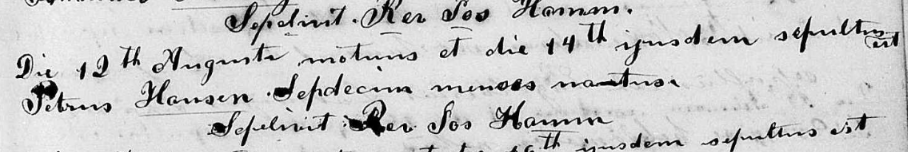 Sepelivit. Rev Jos Hamm.
Die 12th Augusti motuus et die 14th ejusdem sepultus est
Petrus Hansen. Septdecim menses nautus.
Sepelivit Rev Jos Hamm
ejusdem sepultus est